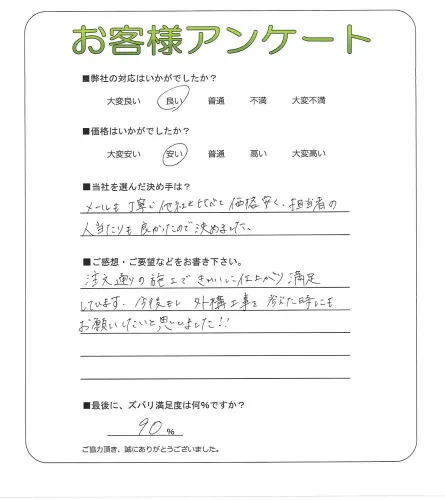 お客様アンケート
■弊社の対応はいかがでしたか?
大変良い 良い 普通 不満 大変不満
■価格はいかがでしたか?
大変安い 安い 普通 高い 大変高い
■当社を選んだ決め手は?
メールも丁寧で他社と比べて価格安く、担当者の
人当たりも良かったので決めました。
■ご感想・ご要望などをお書き下さい。
注文通りの施工できれいに仕上がり満足
しています。今後もし外構工事を 時にも
お願いしたいと思いました!!
■最後に、ズバリ満足度は何%ですか?
90 %
ご協力頂き、誠にありがとうございました。